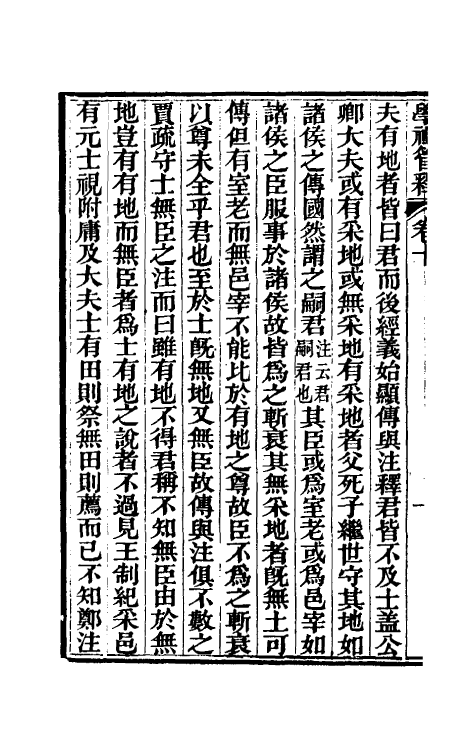 學禮管釋 卷十 一
夫有地者皆曰君而後經義始顯傳與注釋君皆不及士蓋公
卿大夫或有采地或無采地有采地者父死子繼世守其地如
諸侯之傳國然謂之嗣君注云君嗣君也其臣或爲室老或爲邑宰如
諸侯之臣服事於諸侯故皆爲之斬衰其無采地者旣無土可
傳但有室老而無邑宰不能比於有地之尊故臣不爲之斬衰
以尊未全乎君也至於士旣無地又無臣故傳與注俱不數之
賈疏守士無臣之注而曰雖有地不得君稱不知無臣由於無
地豈有有地而無臣者爲士有地之說者不過見王制紀采邑
有元士視附庸及大夫士有田則祭無田則薦而已不知鄭注